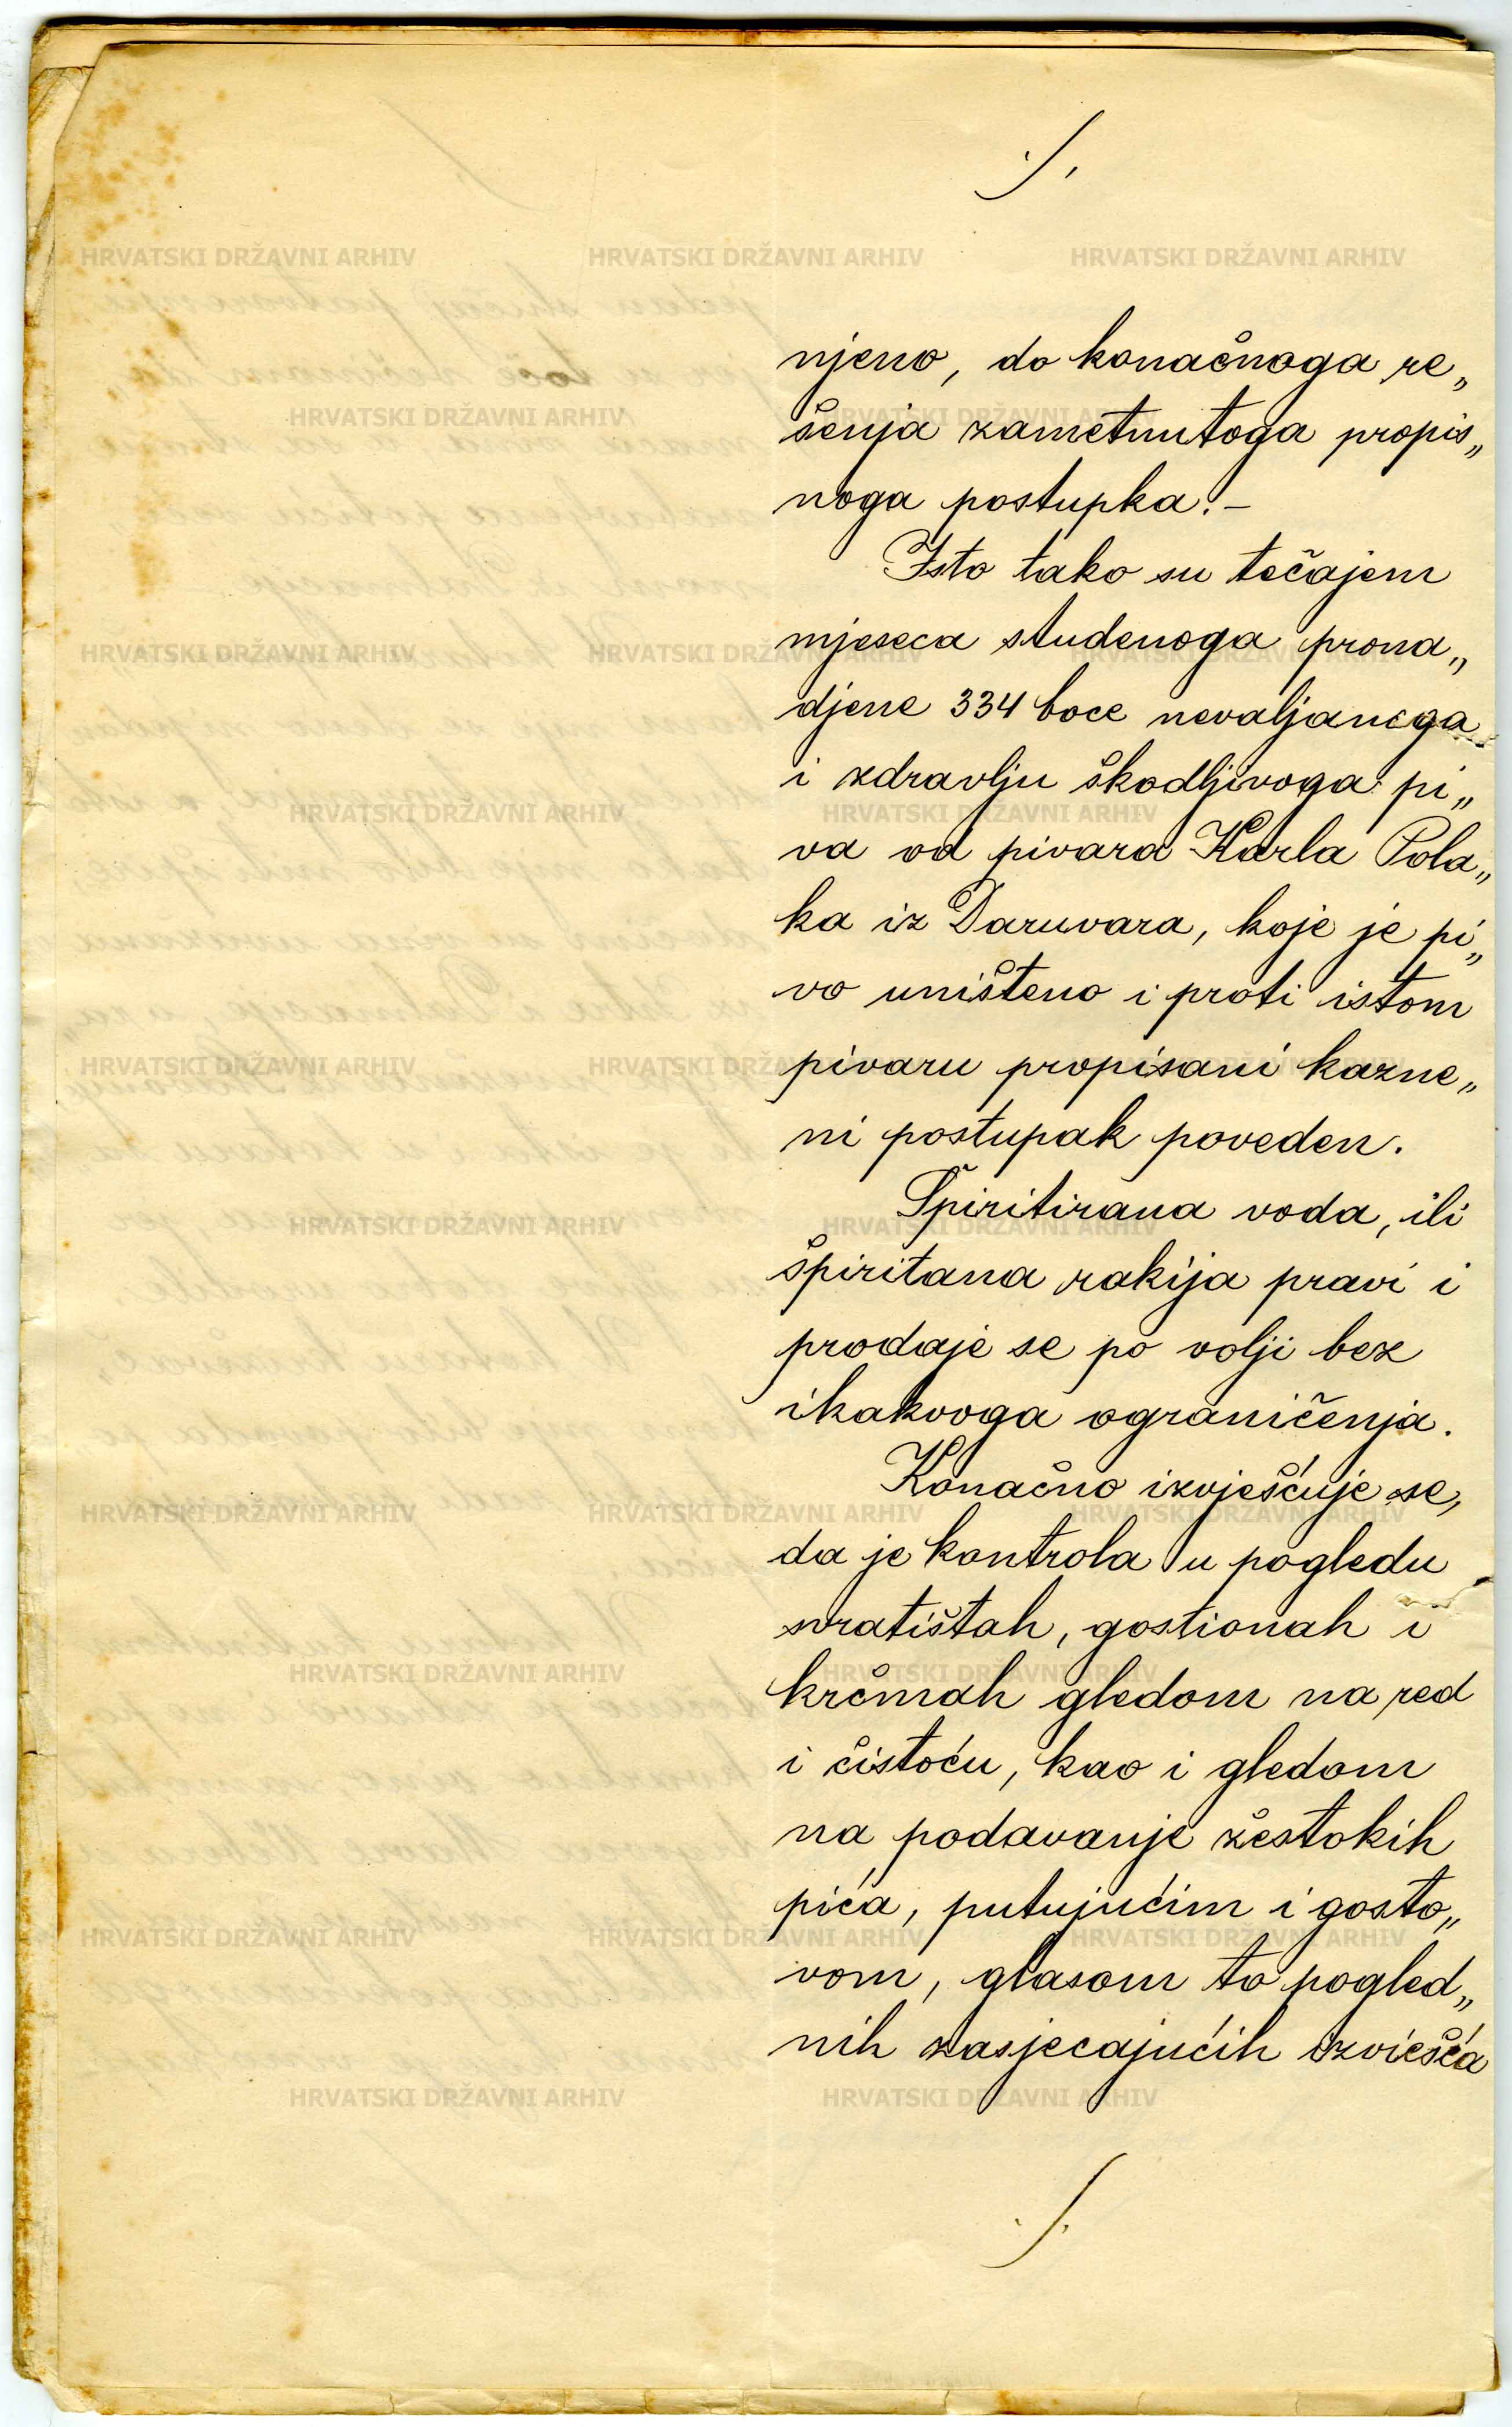 ./.
njeno, do konačnoga re„
šenja zametnutoga propis„
noga postupka.–
Isto tako su tečajem
mjeseca studenoga prona„
djene 334 boce nevaljanoga
i zdravlju škodljivoga pi„
va od pivara Karla Pola„
ka iz Daruvara, koje je pi„
vo uništeno i proti istom
pivaru propisani kazne„
ni postupak poveden.
Špiritirana voda, ili
špiritana rakija pravi i
prodaje se po volji bez
ikakvoga ograničenja.
Konačno izvješćuje se,
da je kontrola u pogledu
svratištah, gostionah i
krčmah gledom na red
i čistoću, kao i gledom
na podavanje žestokih
pića, putujućim i gosto„
vom, glasom to pogled„
nih zasjecajućih izviešća
./.
HRVATSKI DRŽAVNI ARHIV